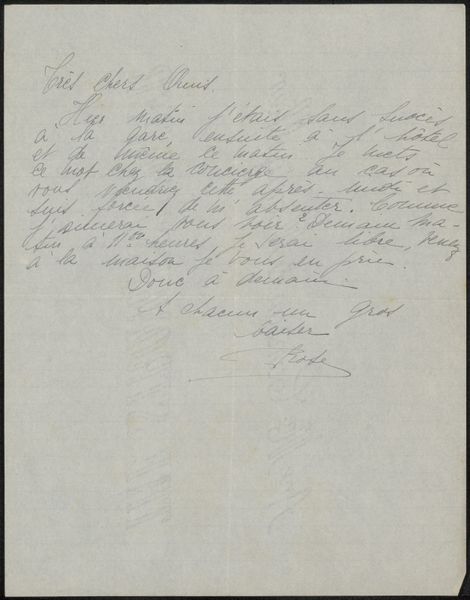 Très chers Amis.
Hier matin j'étais sans succès
à la gare, ensuite à l'hôtel
et de même ce matin. Je mets
ce mot chez la concierge au cas où
vous viendriez cette après-midi et
suis forcée de m'absenter. Comme
j'aimerai vous voir? Demain ma-
tin à 11 heures, je serai libre, venez
à la maison je vous en prie.
Donc à demain.
A chacun un gros
baiser
Rose